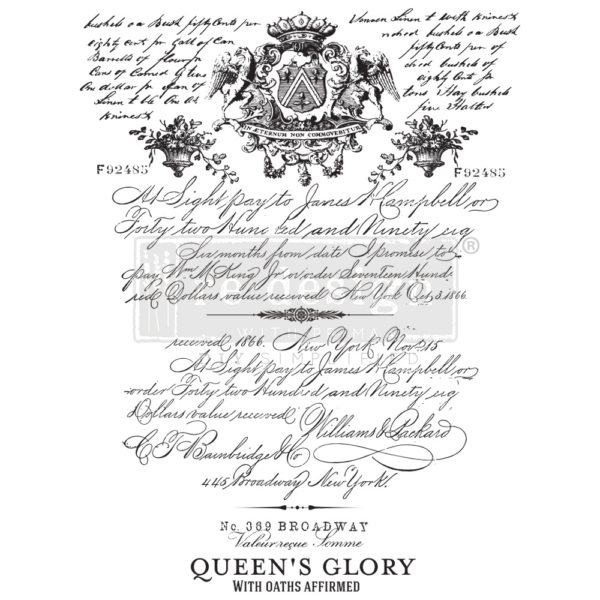 bushels o a Bush fifty Cents per
eighty cent pr Gall of Can
Barrells of flower
Cans of Camed G
One dollar pr
Linen t 66 Cts At
Kinnest
Linen t with Kinnest
bushels o a Bush
fifty Cents per
bushels of
eighty Cent pr
tons Hay bushels
fine Halter
IN ÆTERNUM NON COMMOVEBITUR
F92485
F92485
At Sight pay to James K Campbell or
Forty two Hund ed and Ninety eig
Six months from date I promise to
pay Wm M King Jr or order Seventeen Hund
red Dollars value received New York Oct 3. 1866.
re·design
®
WITH PRIMA
received 1866. New York Nov 15
At Sight pay to James K Campbell or
order Forty two Hundred and Ninety eig
Dollars value received
Williams & Packard
C. T. Bainbridge & Co
445 Broadway New York.
No. 369 BROADWAY
Valeur reçue Somme
QUEEN'S GLORY
WITH OATHS AFFIRMED